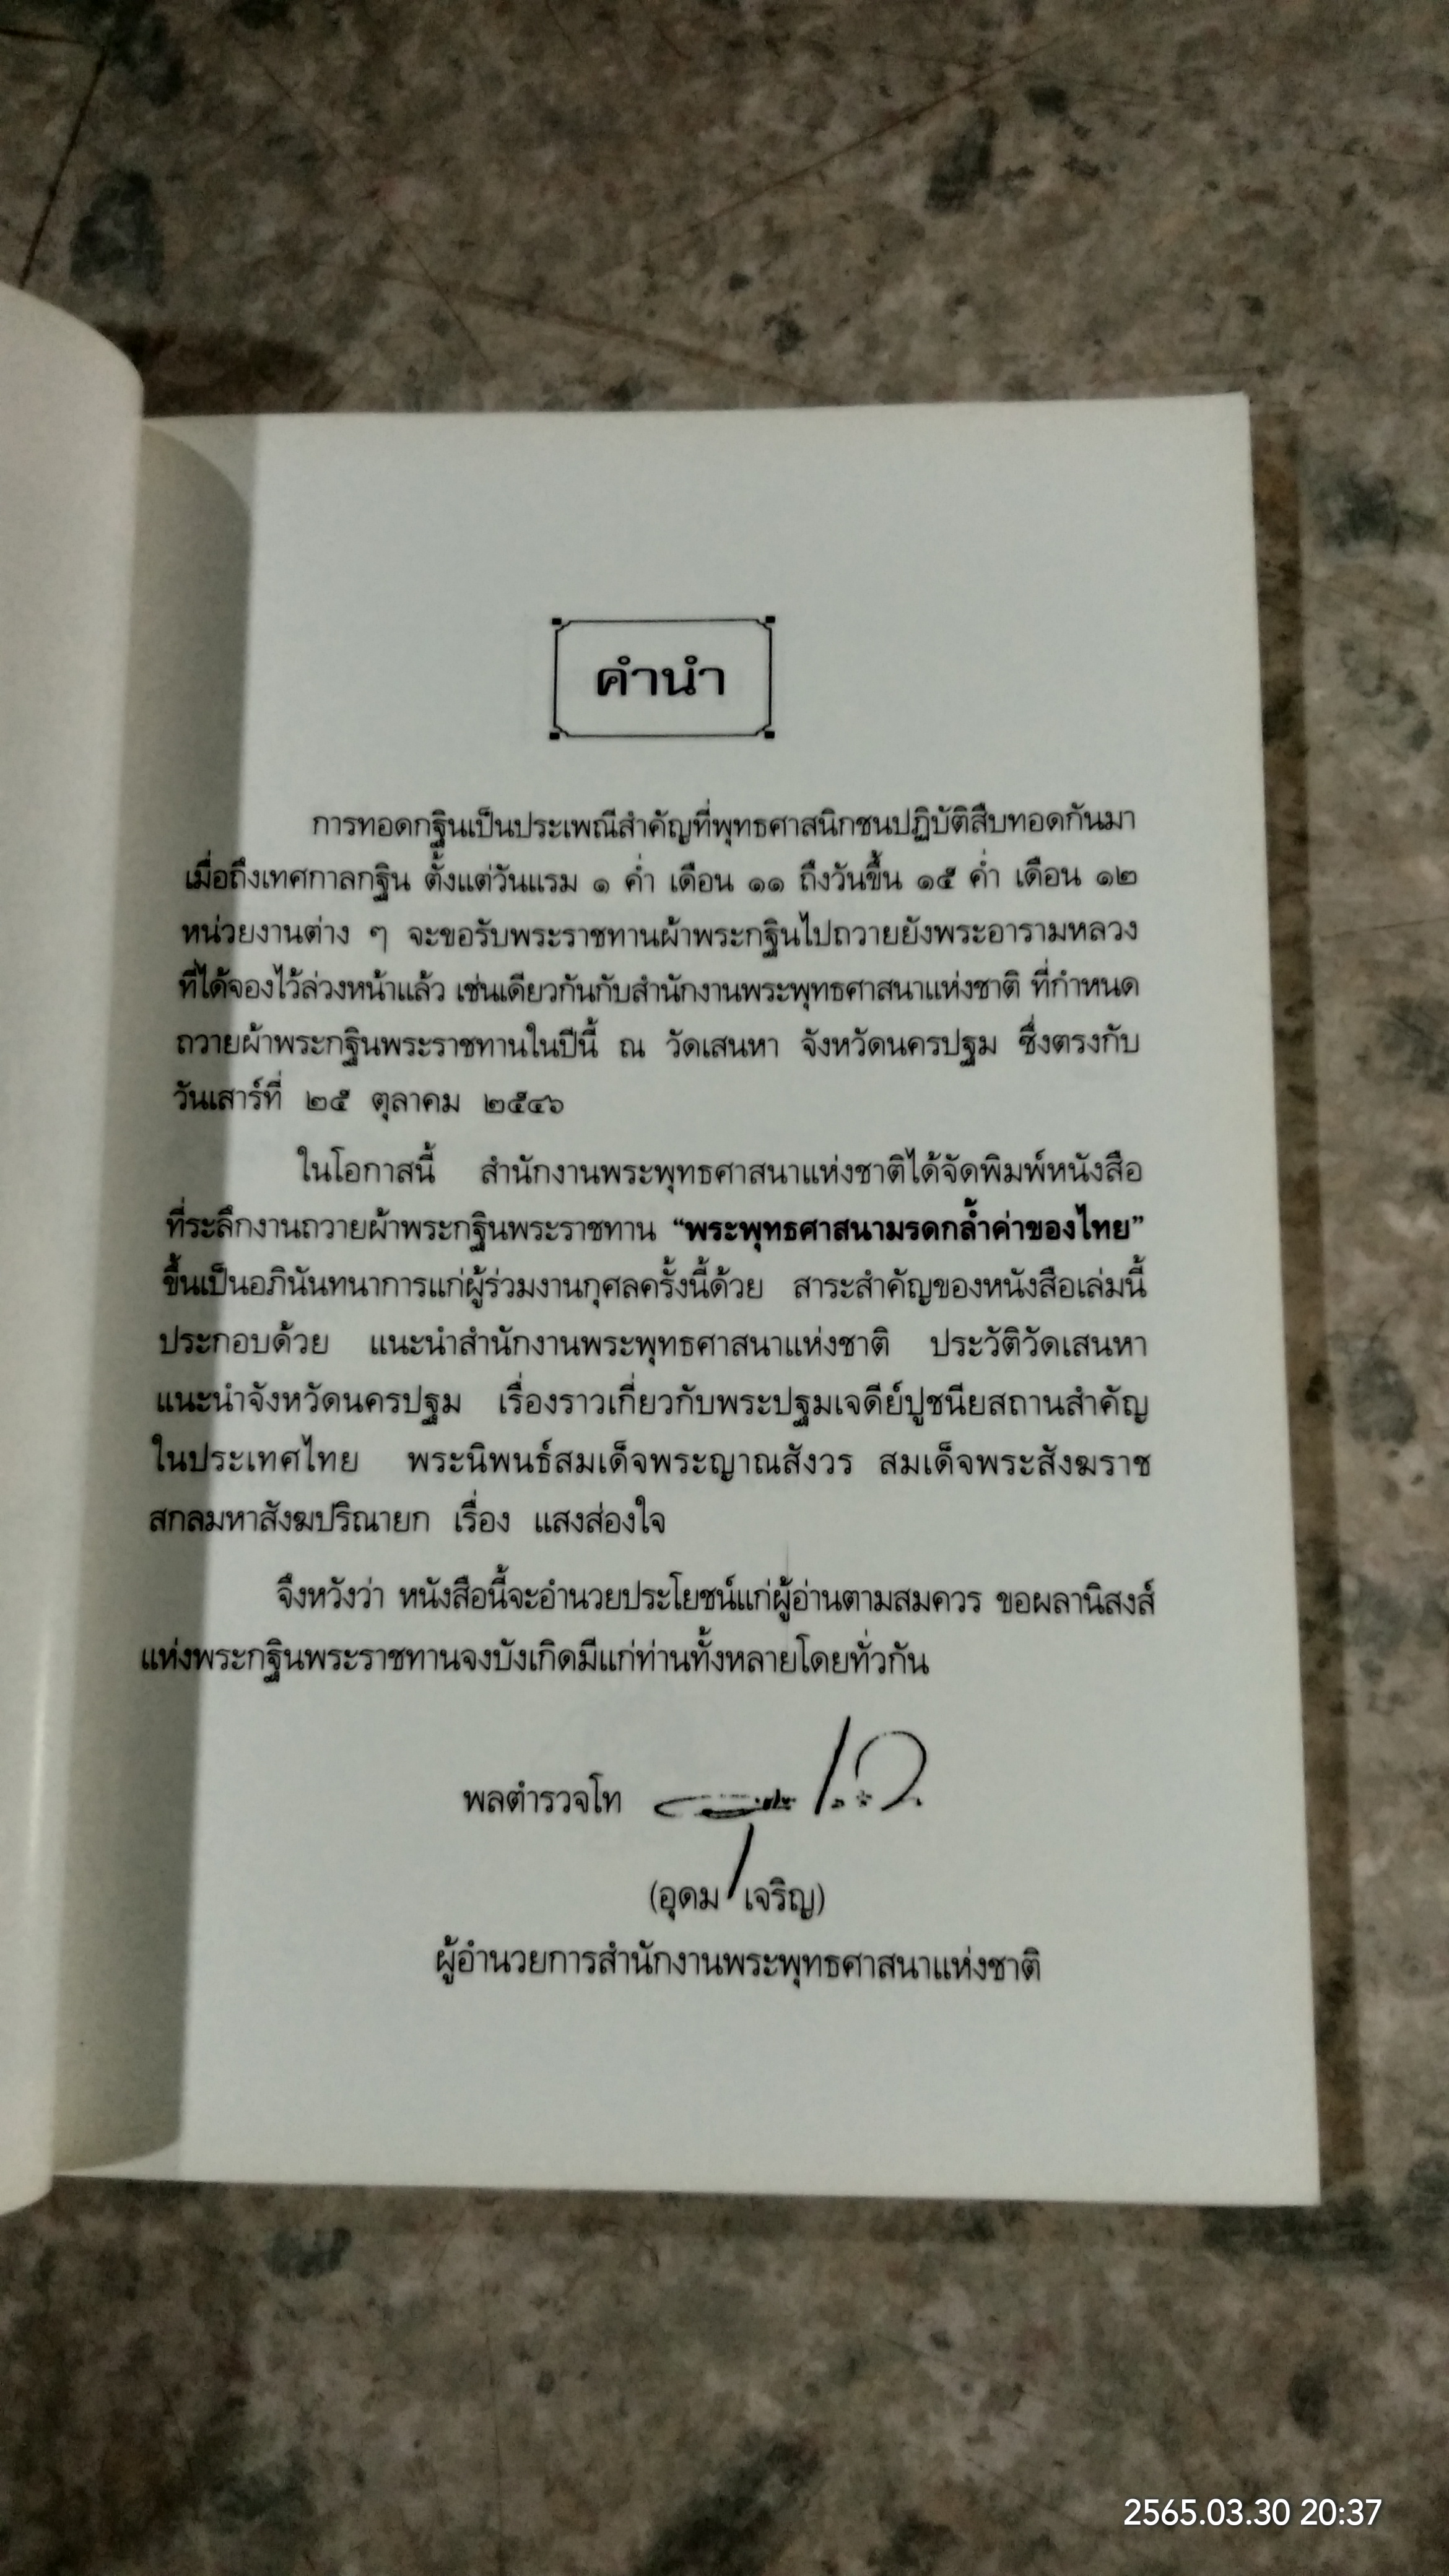 คำนำ
การทอดกฐินเป็นประเพณีสำคัญที่พุทธศาสนิกชนปฏิบัติสืบทอดกันมา
เมื่อถึงเทศกาลกฐิน ตั้งแต่วันแรม ๑ ค่ำ เดือน ๑๑ ถึงวันขึ้น ๑๕ ค่ำ เดือน ๑๒
หน่วยงานต่าง ๆ จะขอรับพระราชทานผ้าพระกฐินไปถวายยังพระอารามหลวง
ที่ได้จองไว้ล่วงหน้าแล้ว เช่นเดียวกันกับสำนักงานพระพุทธศาสนาแห่งชาติ ที่กำหนด
ถวายผ้าพระกฐินพระราชทานในปีนี้ ณ วัดเสนหา จังหวัดนครปฐม ซึ่งตรงกับ
วันเสาร์ที่ ๒๕ ตุลาคม ๒๕๔๖
ในโอกาสนี้ สำนักงานพระพุทธศาสนาแห่งชาติได้จัดพิมพ์หนังสือ
ที่ระลึกงานถวายผ้าพระกฐินพระราชทาน “พระพุทธศาสนามรดกล้ำค่าของไทย”
ขึ้นเป็นอภินันทนาการแก่ผู้ร่วมงานกุศลครั้งนี้ด้วย สาระสำคัญของหนังสือเล่มนี้
ประกอบด้วย แนะนำสำนักงานพระพุทธศาสนาแห่งชาติ ประวัติวัดเสนหา
แนะนำจังหวัดนครปฐม เรื่องราวเกี่ยวกับพระปฐมเจดีย์ปูชนียสถานสำคัญ
ในประเทศไทย พระนิพนธ์สมเด็จพระญาณสังวร สมเด็จพระสังฆราช
สกลมหาสังฆปริณายก เรื่อง แสงส่องใจ
จึงหวังว่า หนังสือนี้จะอำนวยประโยชน์แก่ผู้อ่านตามสมควร ขอผลานิสงส์
แห่งพระกฐินพระราชทานจงบังเกิดมีแก่ท่านทั้งหลายโดยทั่วกัน
พลตำรวจโท
(อุดม เจริญ)
ผู้อำนวยการสำนักงานพระพุทธศาสนาแห่งชาติ
2565.03.30 20:37